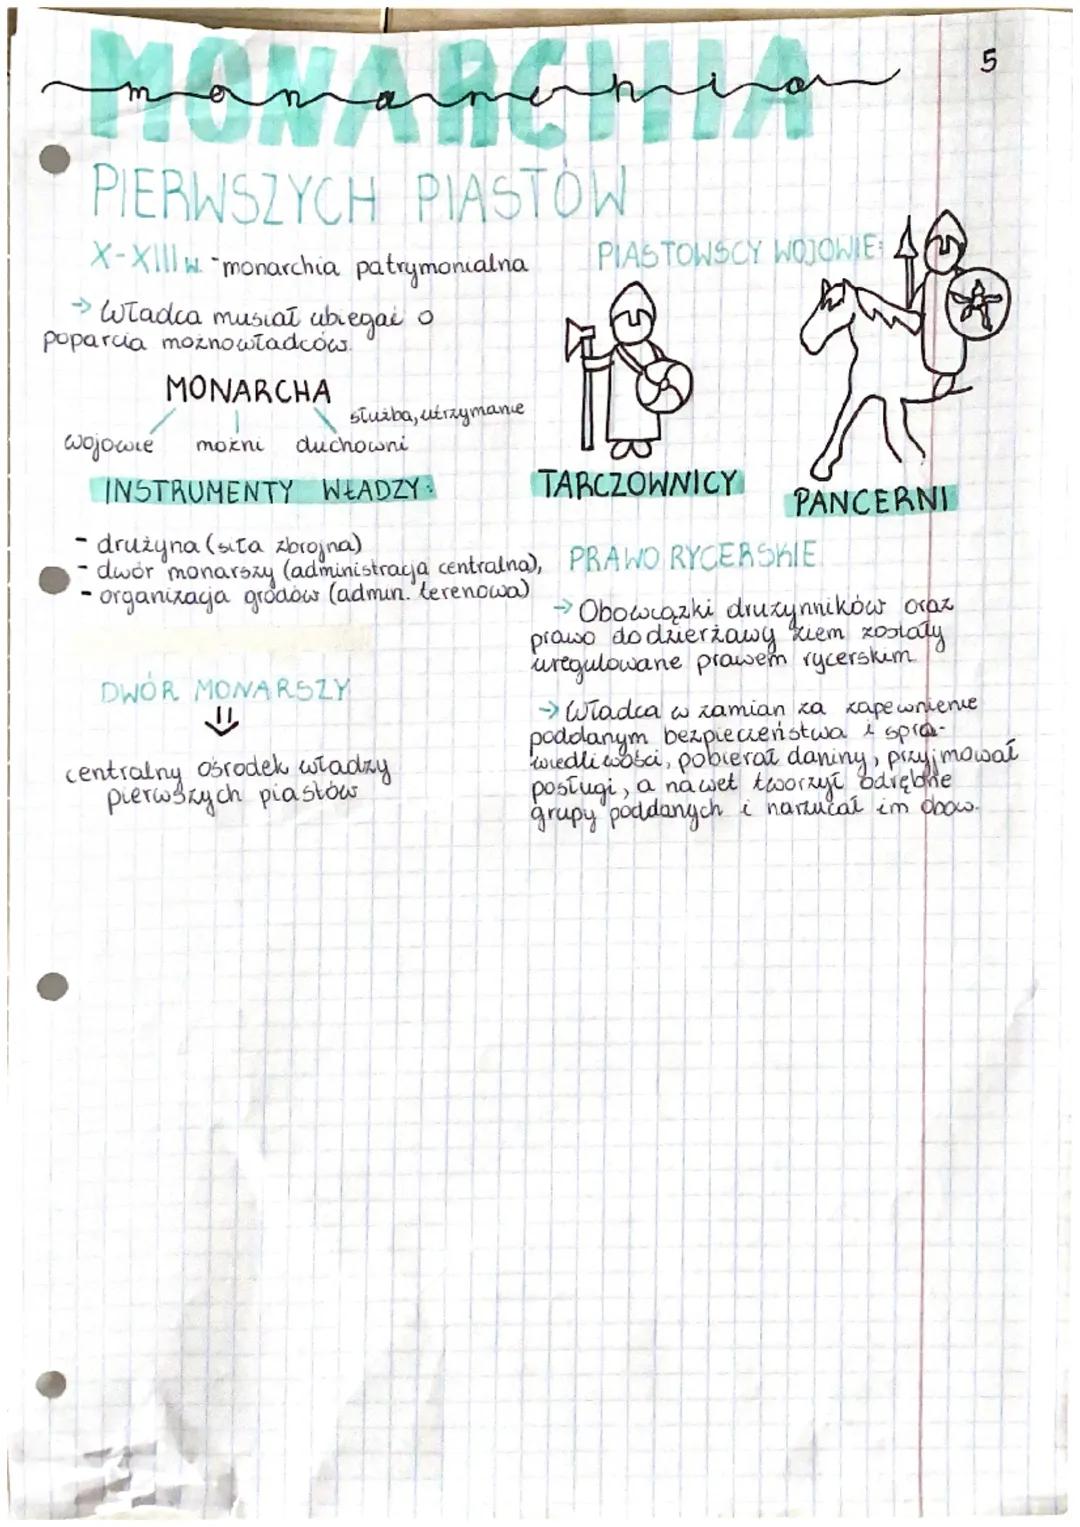 MONARCHIA
monarchia
5
PIERWSZYCH PIASTÓW
X-XIII w. - monarchia patrymonialna
→ Władca musiał ubiegać o
poparcia możnowładców.
MONARCHA
służba, utrzymanie
wojowie możni duchowni
INSTRUMENTY WŁADZY:
- drużyna (siła zbrojna)
- dwór monarszy (administracja centralna),
- organizacja grodów (admin. terenowa)
DWÓR MONARSZY
⇓
centralny ośrodek władzy
pierwszych piastów
PIASTOWSCY WOJOWIE:
TARCZOWNICY
PANCERNI
PRAWO RYCERSKIE
→ Obowiązki drużynników oraz
prawo do dzierżawy ziem zostały
uregulowane prawem rycerskim
→ Władca w zamian za zapewnienie
poddanym bezpieczeństwa i spra-
wiedliwości, pobierał daniny, przyjmował
posługi, a nawet tworzył odrębne
grupy poddanych i narzucał im obow.